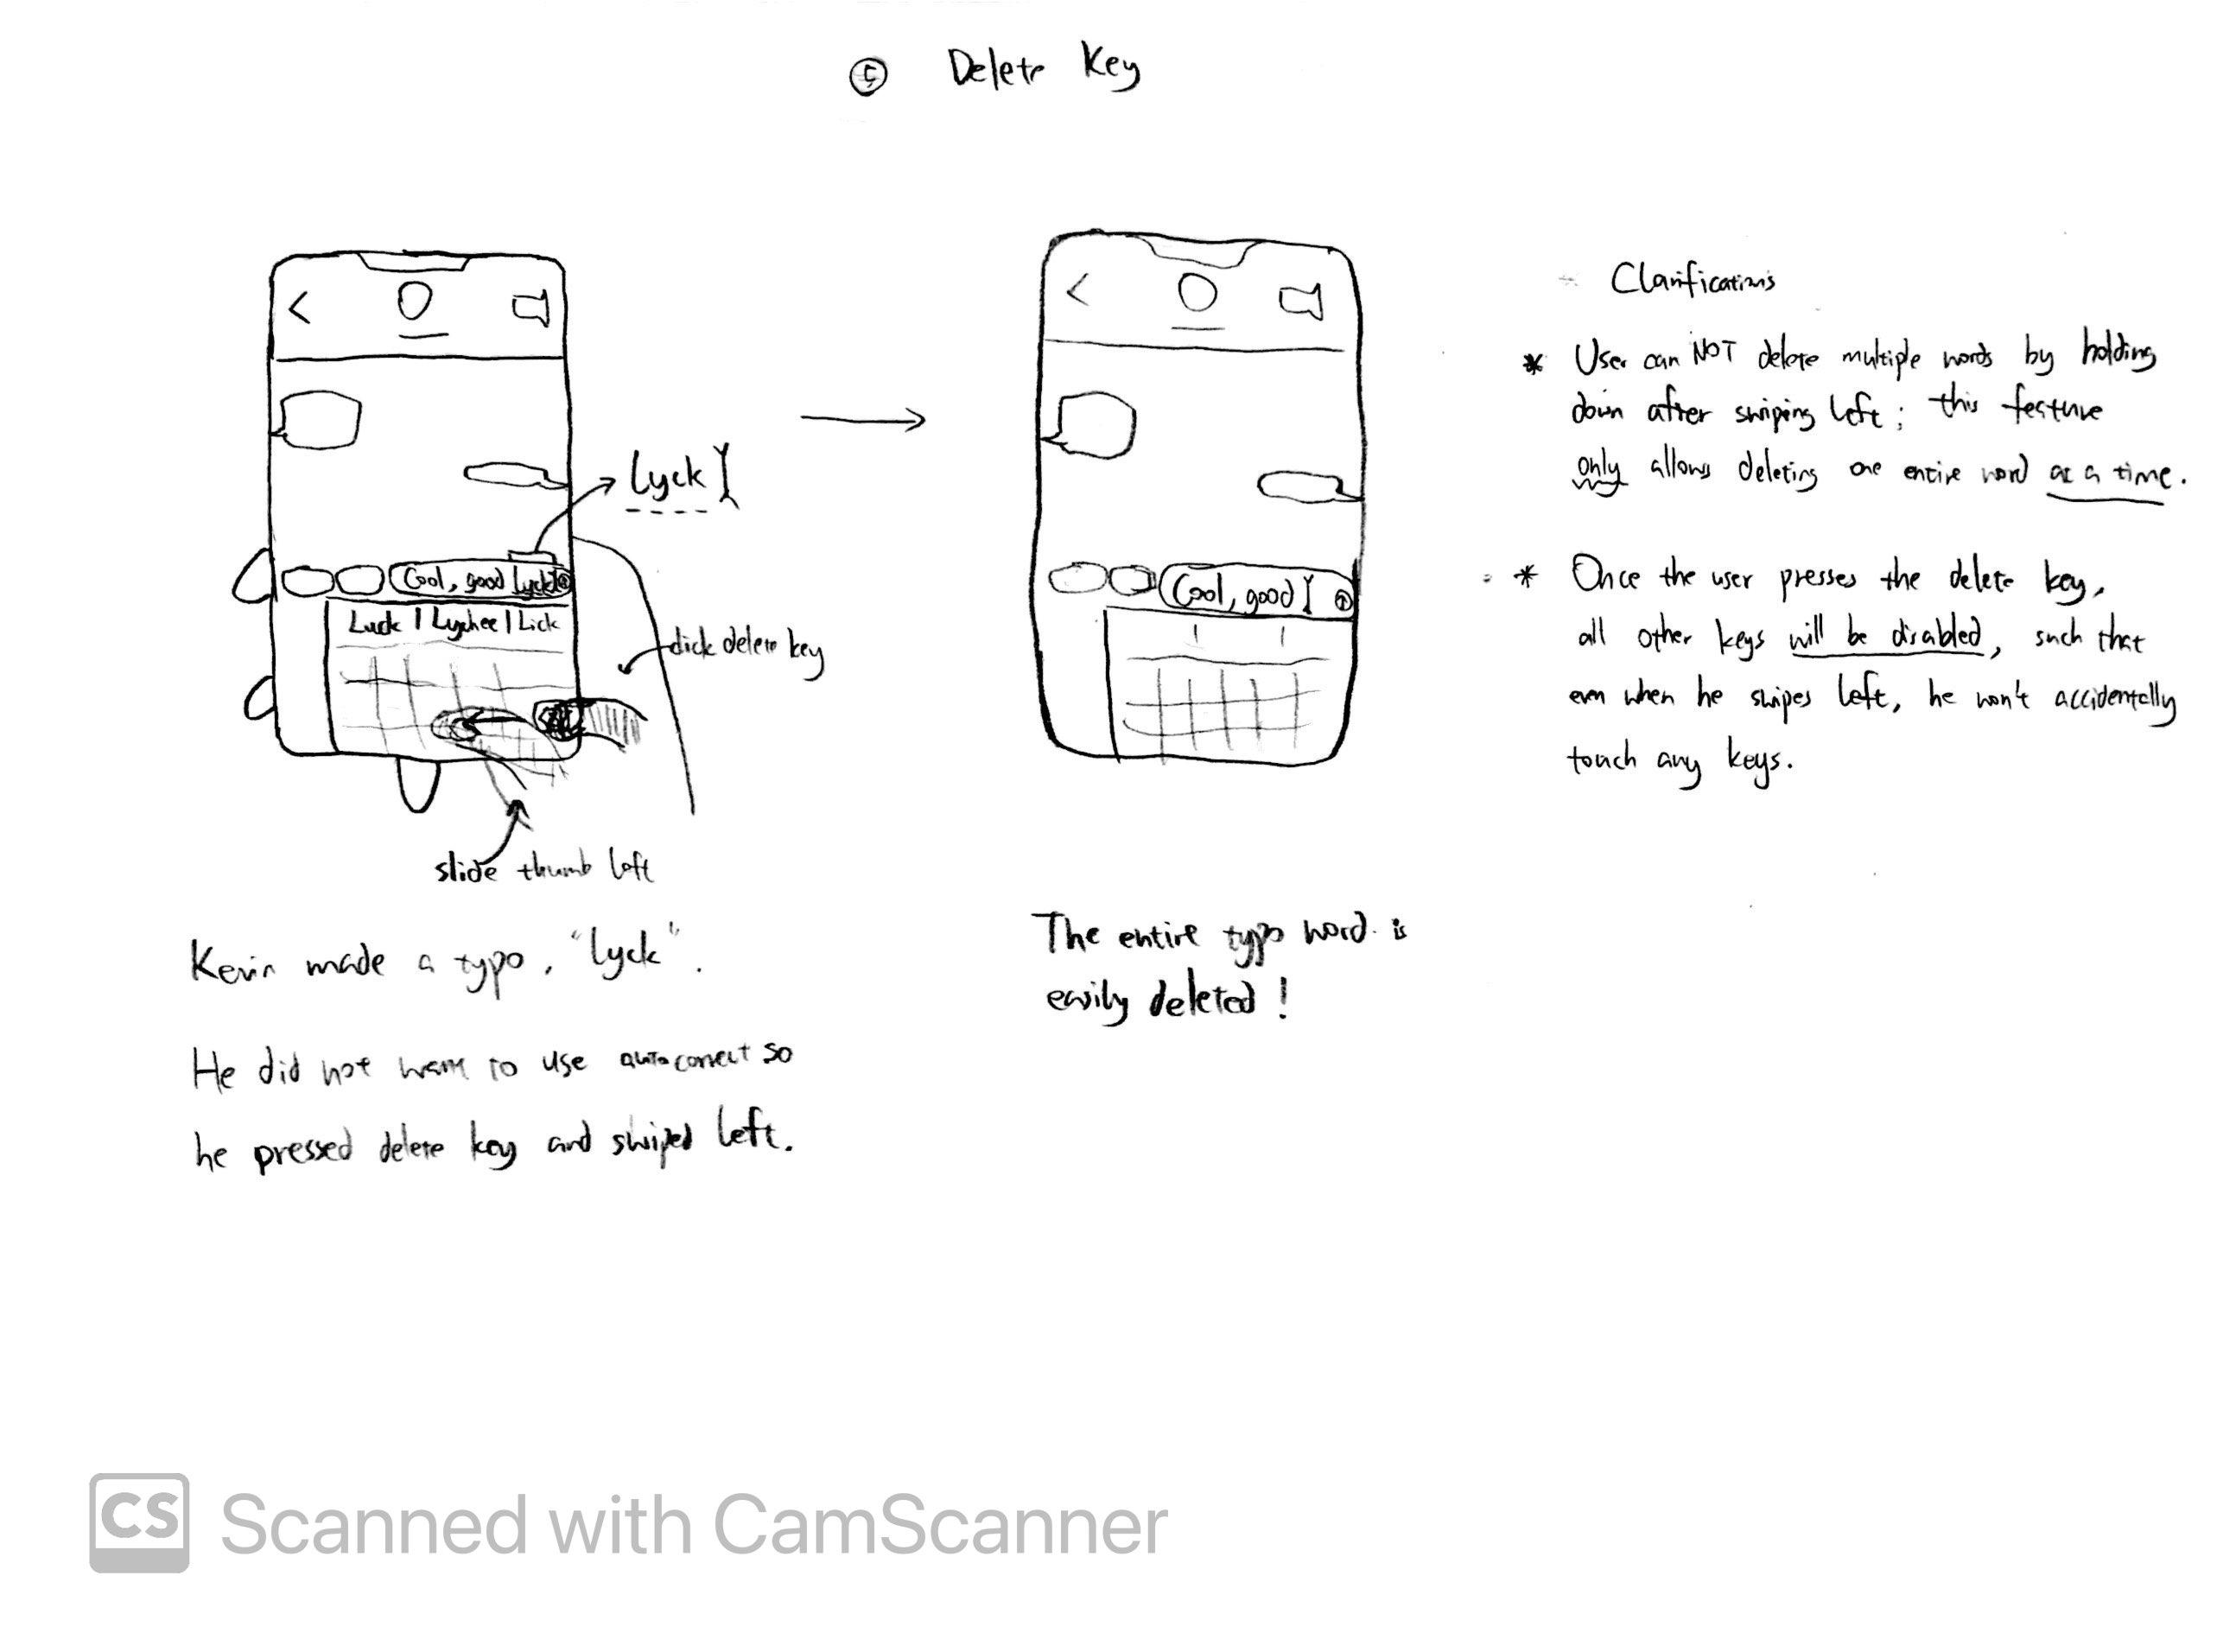 Delete Key
Lyck
Cool, good Lyck
Luck | Lychee | Lick
click delete key
slide thumb left
Kevin made a typo, "Lyck".
He did not want to use autocorrect so
he pressed delete key and swiped left.
Cool, good
The entire typo word is
easily deleted!
Clarifications
* User can NOT delete multiple words by holding
down after swiping left; this feature
only allows deleting one entire word at a time.
* Once the user presses the delete key,
all other keys will be disabled, such that
even when he swipes left, he won't accidentally
touch any keys.
CS Scanned with CamScanner